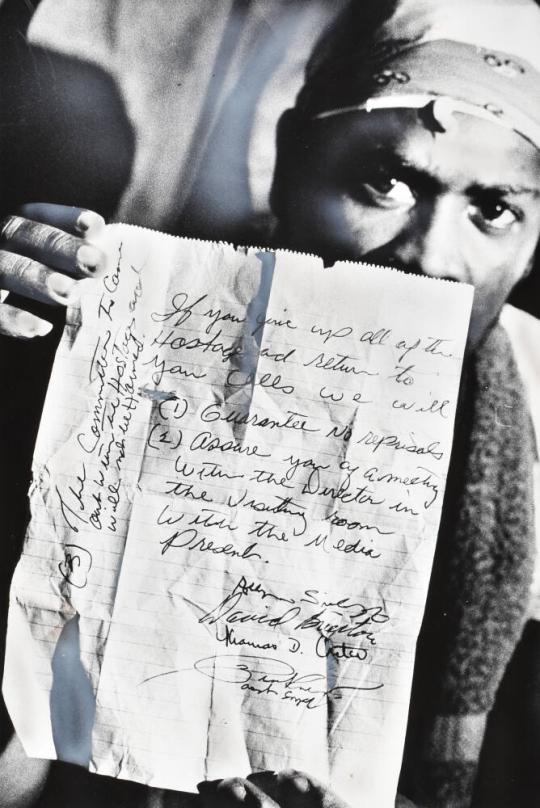 If you give up all of the
Hostage and return to
your Cells we will
(1) Guarantee No reprisals
(2) Assure you of a meeting
With the Director in
the Visiting room
With the Media
Present.
(3) The Committee to Come
out with the Hostage and
will not be Harmed.
David
Thomas D.